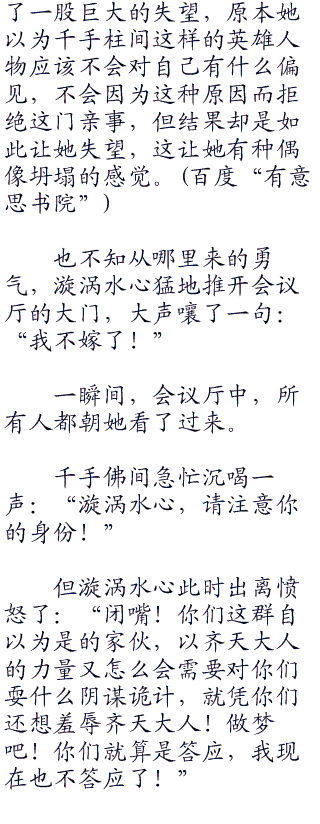 了一股巨大的失望，原本她
以为千手柱间这样的英雄人
物应该不会对自己有什么偏
见，不会因为这种原因而拒
绝这门亲事，但结果却是如
此让她失望，这让她有种偶
像坍塌的感觉。(百度“有意
思书院”)
也不知从哪里来的勇
气，漩涡水心猛地推开会议
厅的大门，大声嚷了一句：
“我不嫁了！”
一瞬间，会议厅中，所
有人都朝她看了过来。
千手佛间急忙沉喝一
声：“漩涡水心，请注意你
的身份！”
但漩涡水心此时出离愤
怒了：“闭嘴！你们这群自
以为是的家伙，以齐天大人
的力量又怎么会需要对你们
耍什么阴谋诡计，就凭你们
还想羞辱齐天大人！做梦
吧！你们就算是答应，我现
在也不答应了！”